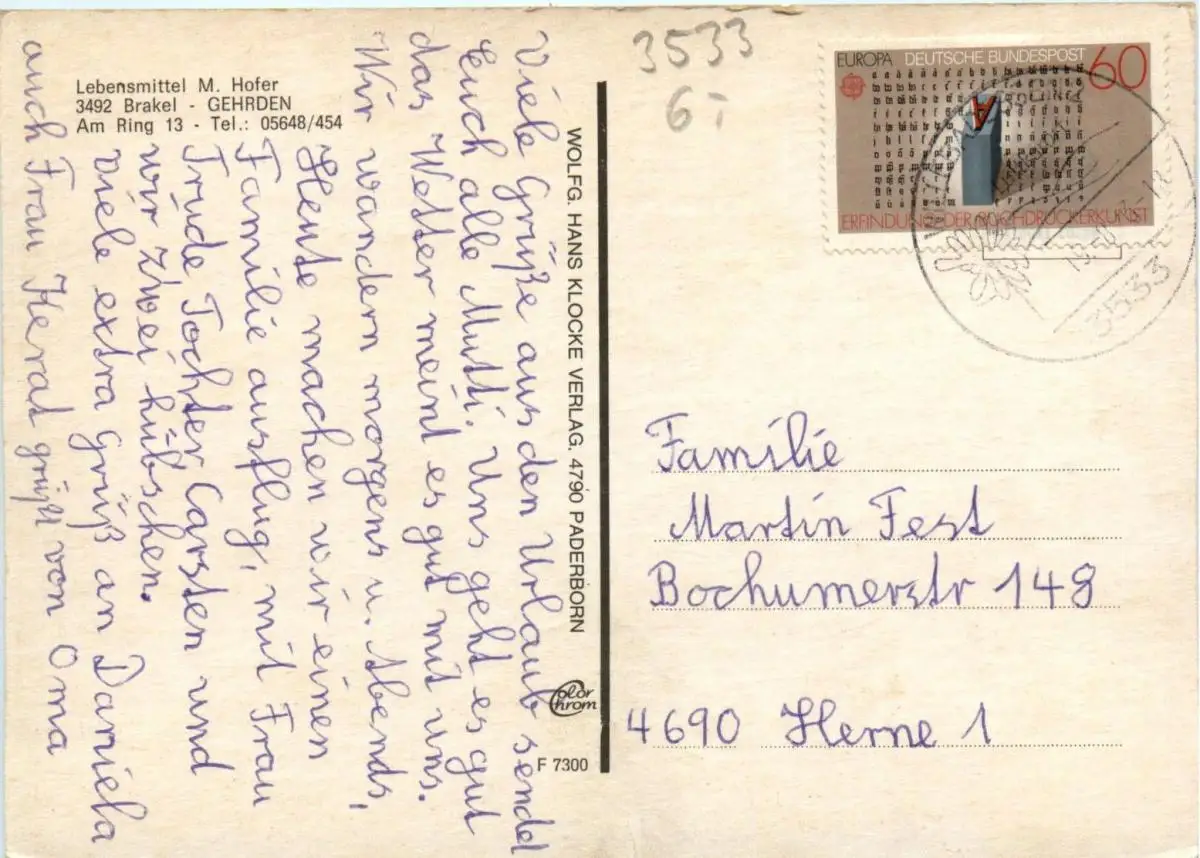 Lebensmittel M. Hofer
3492 Brakel - GEHRDEN
Am Ring 13 - Tel.: 05648/454
Viele Grüße aus den Urlaub sendet
Euch alle Mutti. Uns geht es gut
das Wetter meint es gut mit uns.
Wir wandern morgens u. Abends,
Heute machen wir einen
Familie ausflug, mit Frau
Trude Tochter, Carsten und
wir zwei hübschen.
viele extra Grüß an Daniela
auch Frau Kerat grüßt von Oma
WOLFG. HANS KLOCKE VERLAG. 4790 PADERBORN
Color
Chrom
F 7300
3533
6,-
EUROPA DEUTSCHE BUNDESPOST 60
ERFINDUNG DER BUCHDRUCKERKUNST
3533
Familie
Martin Fest
Bochumerstr 148
4690 Herne 1